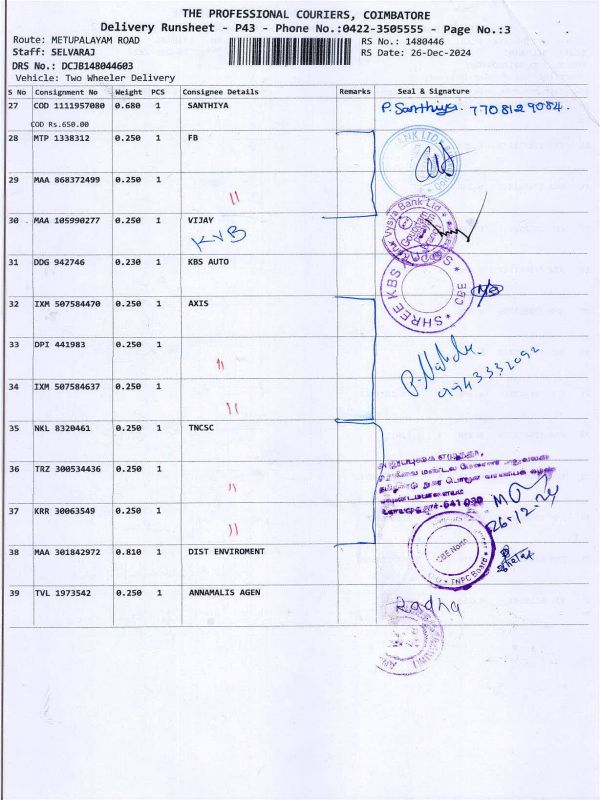 THE PROFESSIONAL COURIERS, COIMBATORE
Delivery Runsheet - P43 - Phone No.:0422-3505555 - Page No.:3
Route: METUPALAYAM ROAD RS No.: 1480446
Staff: SELVARAJ RS Date: 26-Dec-2024
DRS No.: DCJB148044603
Vehicle: Two Wheeler Delivery
S No Consignment No Weight PCS Consignee Details Remarks Seal & Signature
27 COD 1111957080 0.680 1 SANTHIYA P. Santhiya. 7708129084.
COD Rs.650.00
28 MTP 1338312 0.250 1 FB
29 MAA 868372499 0.250 1 "
30 MAA 105990277 0.250 1 VIJAY
KVB
Vysya Bank Ltd
31 DDG 942746 0.230 1 KBS AUTO
SHREE KBS
CBE
32 IXM 507584470 0.250 1 AXIS
33 DPI 441983 0.250 1 "
34 IXM 507584637 0.250 1 "
9943332092
35 NKL 8320461 0.250 1 TNCSC
36 TRZ 300534436 0.250 1 "
37 KRR 30063549 0.250 1 "
641 030
26.12.24
38 MAA 301842972 0.810 1 DIST ENVIROMENT
CBE North
TNPC Board
39 TVL 1973542 0.250 1 ANNAMALIS AGEN
Radha